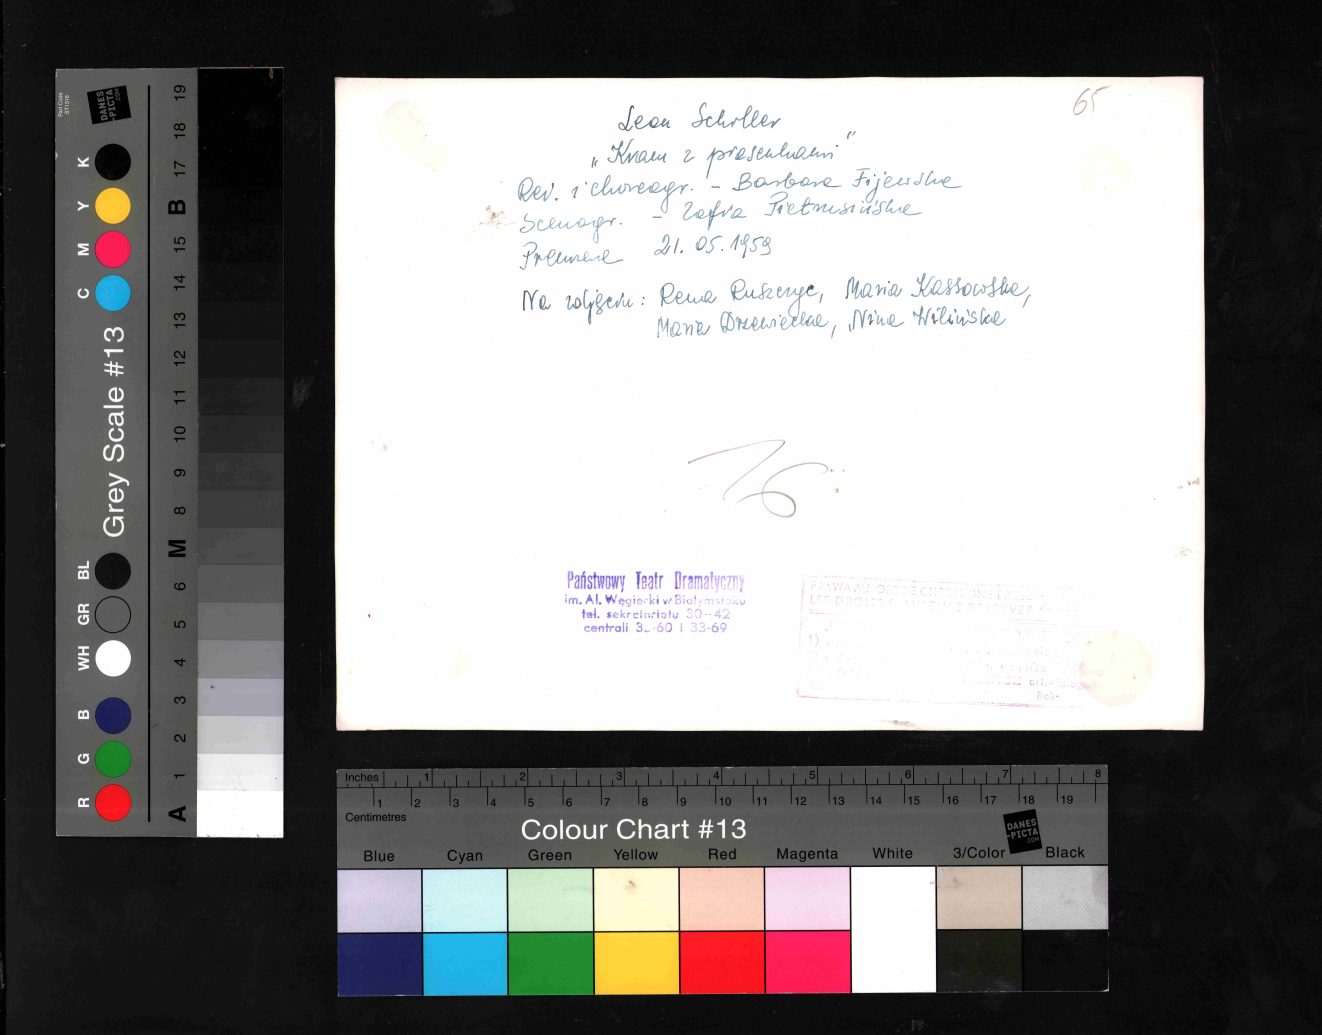 65
Leon Schiller
„Kram z piosenkami”
Reż. i choreogr. – Barbara Fijewska
Scenogr. – Zofia Pietrusińska
Premiera 21.05.1959
Na zdjęciu: Rena Ruszczyc, Maria Kassowska,
Maria Drzewiecka, Nina Wilińska
Państwowy Teatr Dramatyczny
im. Al. Węgierki w Białymstoku
tel. sekretariatu 30-42
centrali 33-69
LES DROITS D'AUTEURS RESERVES
Part Code
ST1316
DANES
-PICTA
.COM
Grey Scale #13
R G B WH GR BL C M Y K
A 1 2 3 4 5 6 M 8 9 10 11 12 13 14 15 B 17 18 19
Inches 1 2 3 4 5 6 7 8
1 2 3 4 5 6 7 8 9 10 11 12 13 14 15 16 17 18 19
Centimetres
Colour Chart #13
DANES
-PICTA
.COM
Blue Cyan Green Yellow Red Magenta White 3/Color Black